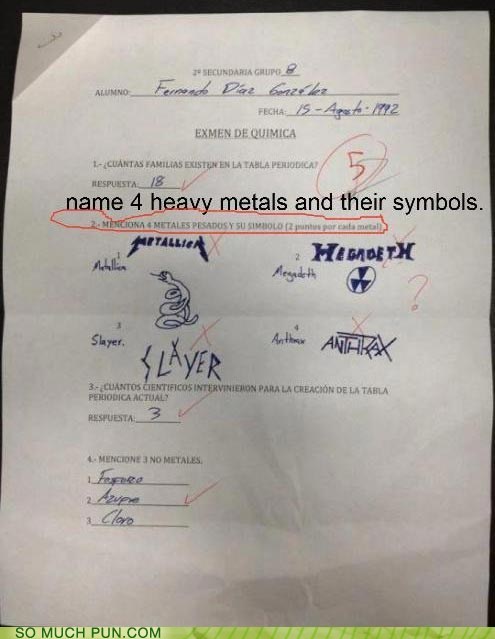 2º SECUNDARIA GRUPO B
ALUMNO: Fernando Díaz González
FECHA: 15 - Agosto - 1992
EXMEN DE QUIMICA
1.- ¿CUÁNTAS FAMILIAS EXISTEN EN LA TABLA PERIODICA?
5
RESPUESTA: 18
name 4 heavy metals and their symbols.
2.- MENCIONA 4 METALES PESADOS Y SU SIMBOLO (2 puntos por cada metal)
METALLICA
MEGADETH
1
Metallica
2
Megadeth
?
3
Slayer.
SLAYER
4
Anthrax
ANTHRAX
3.- ¿CUÁNTOS CIENTIFICOS INTERVINIERON PARA LA CREACIÓN DE LA TABLA
PERIODICA ACTUAL?
RESPUESTA: 3
4.- MENCIONE 3 NO METALES.
1 Fosforo
2 Azufre
3 Cloro
SO MUCH PUN.COM